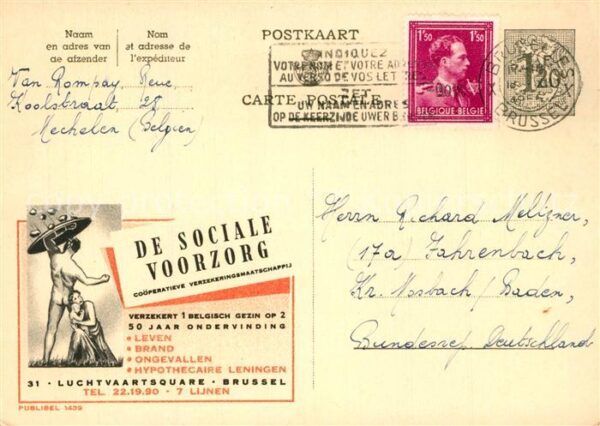 Naam
en adres van
de afzender
Nom
et adresse de
l'expéditeur
POSTKAART
CARTE POSTALE
INDIQUEZ
VOTRE NOM ET VOTRE ADRES
AU VERSO DE VOS LET
ZET
UW NAAM EN ADRES
OP DE KEERZIJDE UWER B
1F50 1F50
BELGIQUE BELGIE
1,20
BRUSSEL
Van Rompay Rene,
Koolstraat, 28
Mechelen (Belgien)
DE SOCIALE
VOORZORG
COÖPERATIEVE VERZEKERINGSMAATSCHAPPIJ
VERZEKERT 1 BELGISCH GEZIN OP 2
50 JAAR ONDERVINDING
• LEVEN
• BRAND
• ONGEVALLEN
• HYPOTHECAIRE LENINGEN
31 · LUCHTVAARTSQUARE · BRUSSEL
TEL. 22.19.90 - 7 LIJNEN
PUBLIBEL 1439
Herrn Richard Meltzner,
(17a) Fahrenbach,
Kr. Mosbach / Baden,
Bundesrep. Deutschland